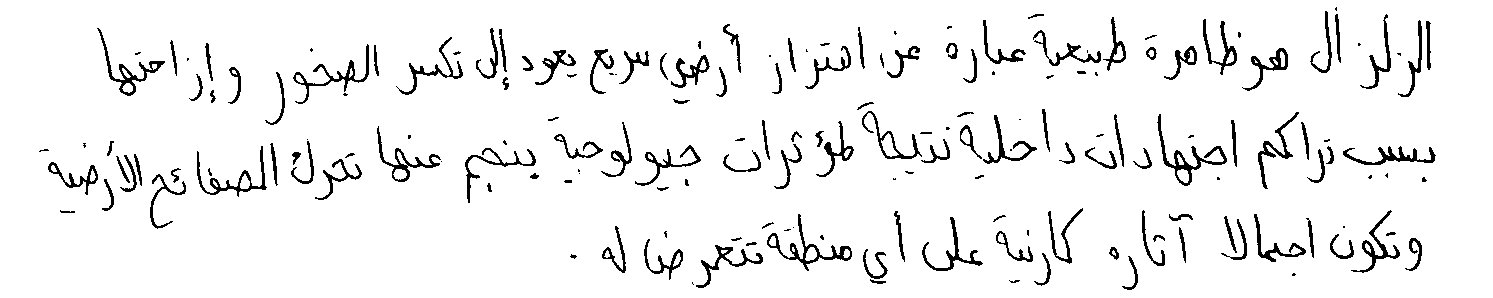 الزلزال هو ظاهرة طبيعية عبارة عن اهتزاز أرضي سريع يعود إلى تكسر الصخور وإزاحتها
بسبب تراكم اجتهادات داخلية نتيجة لمؤثرات جيولوجية ينجم عنها تحرك الصفائح الأرضية
وتكون اجمالا آثاره كارثية على أي منطقة تتعرض له .